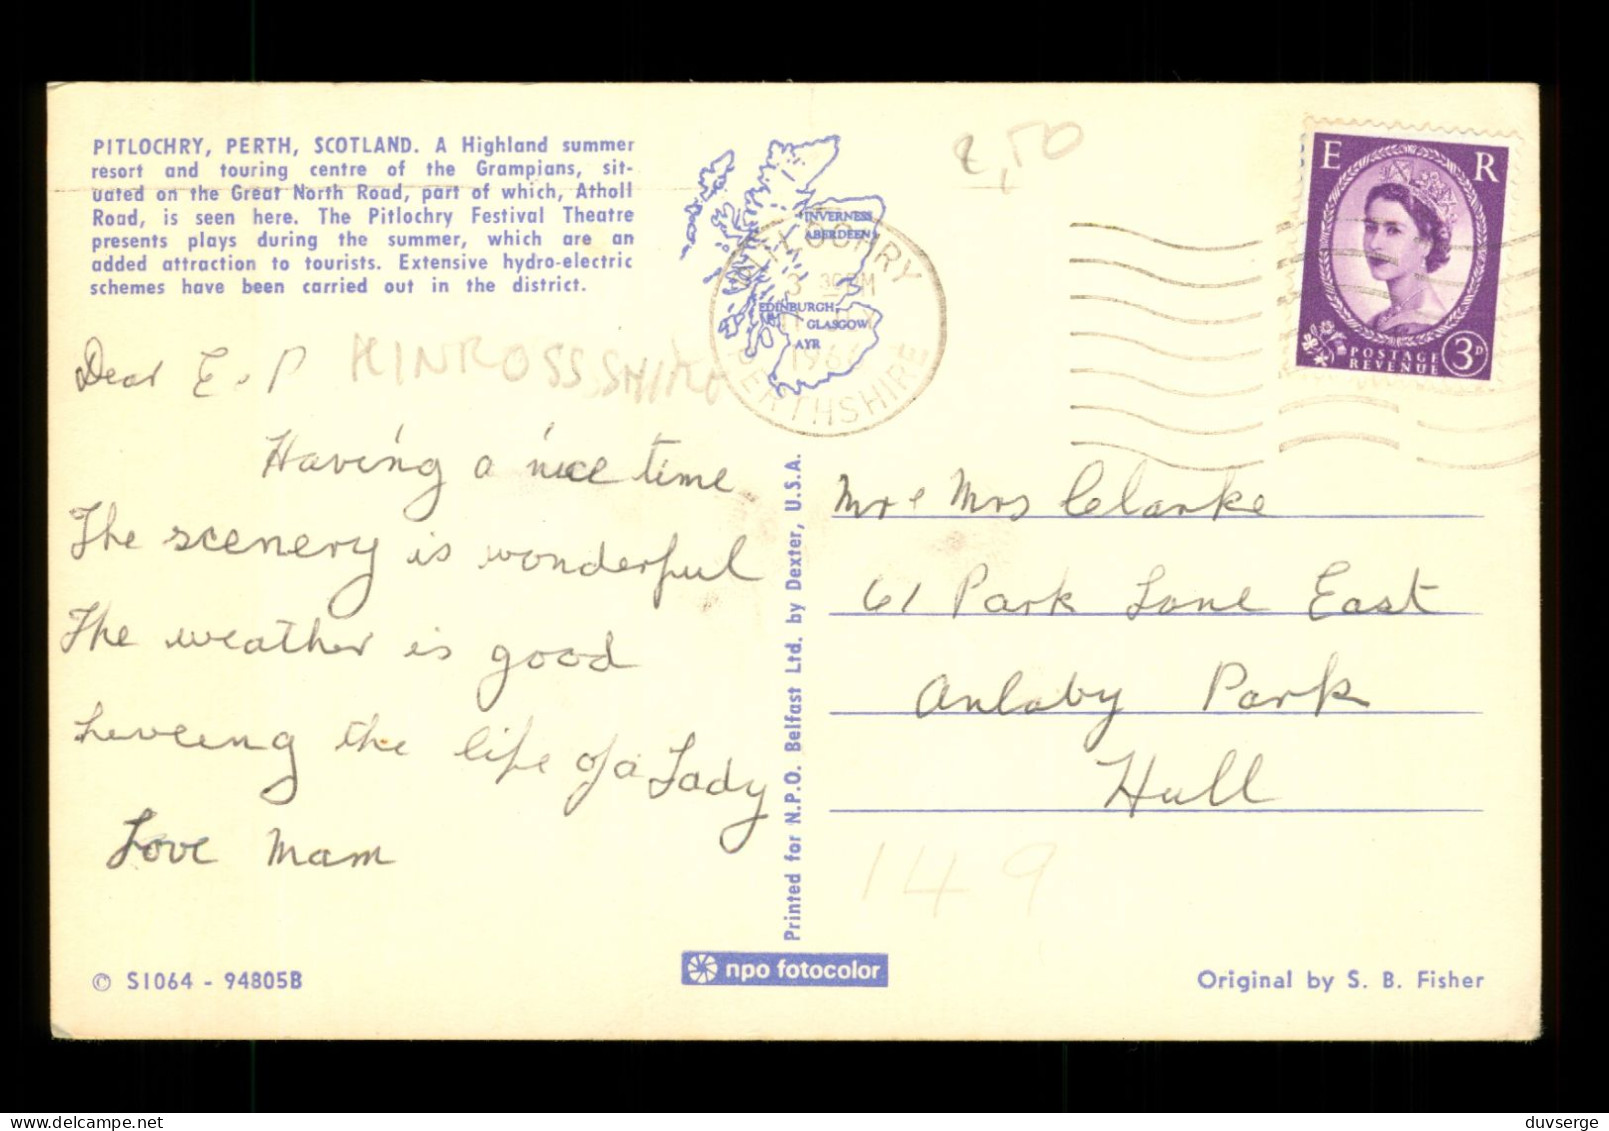 PITLOCHRY, PERTH, SCOTLAND. A Highland summer
resort and touring centre of the Grampians, sit-
uated on the Great North Road, part of which, Atholl
Road, is seen here. The Pitlochry Festival Theatre
presents plays during the summer, which are an
added attraction to tourists. Extensive hydro-electric
schemes have been carried out in the district.
INVERNESS
ABERDEEN
EDINBURGH
GLASGOW
AYR
PITLOCHRY
PERTHSHIRE
2,50
E R
POSTAGE
REVENUE
3D
Dear E. P
KINROSSSHIRE
Having a nice time
The scenery is wonderful
The weather is good
liveeing the life of a Lady
Love Mam
Mr & Mrs Clarke
61 Park Lane East
Anlaby Park
Hull
149
Printed for N.P.O. Belfast Ltd. by Dexter, U.S.A.
© S1064 - 94805B
npo fotocolor
Original by S. B. Fisher
duvserge